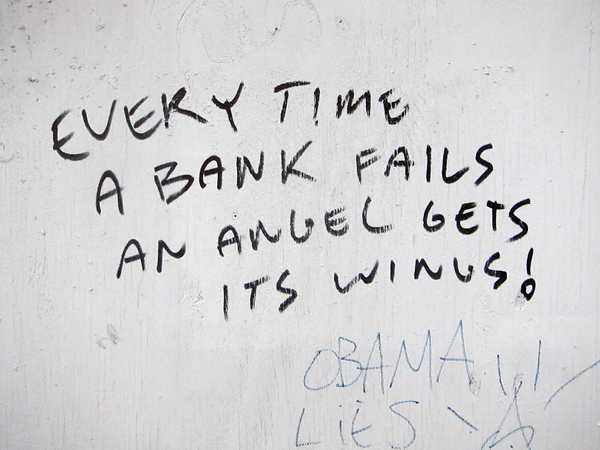 EVERY TIME
A BANK FAILS
AN ANGEL GETS
ITS WINGS!
OBAMA
LIES